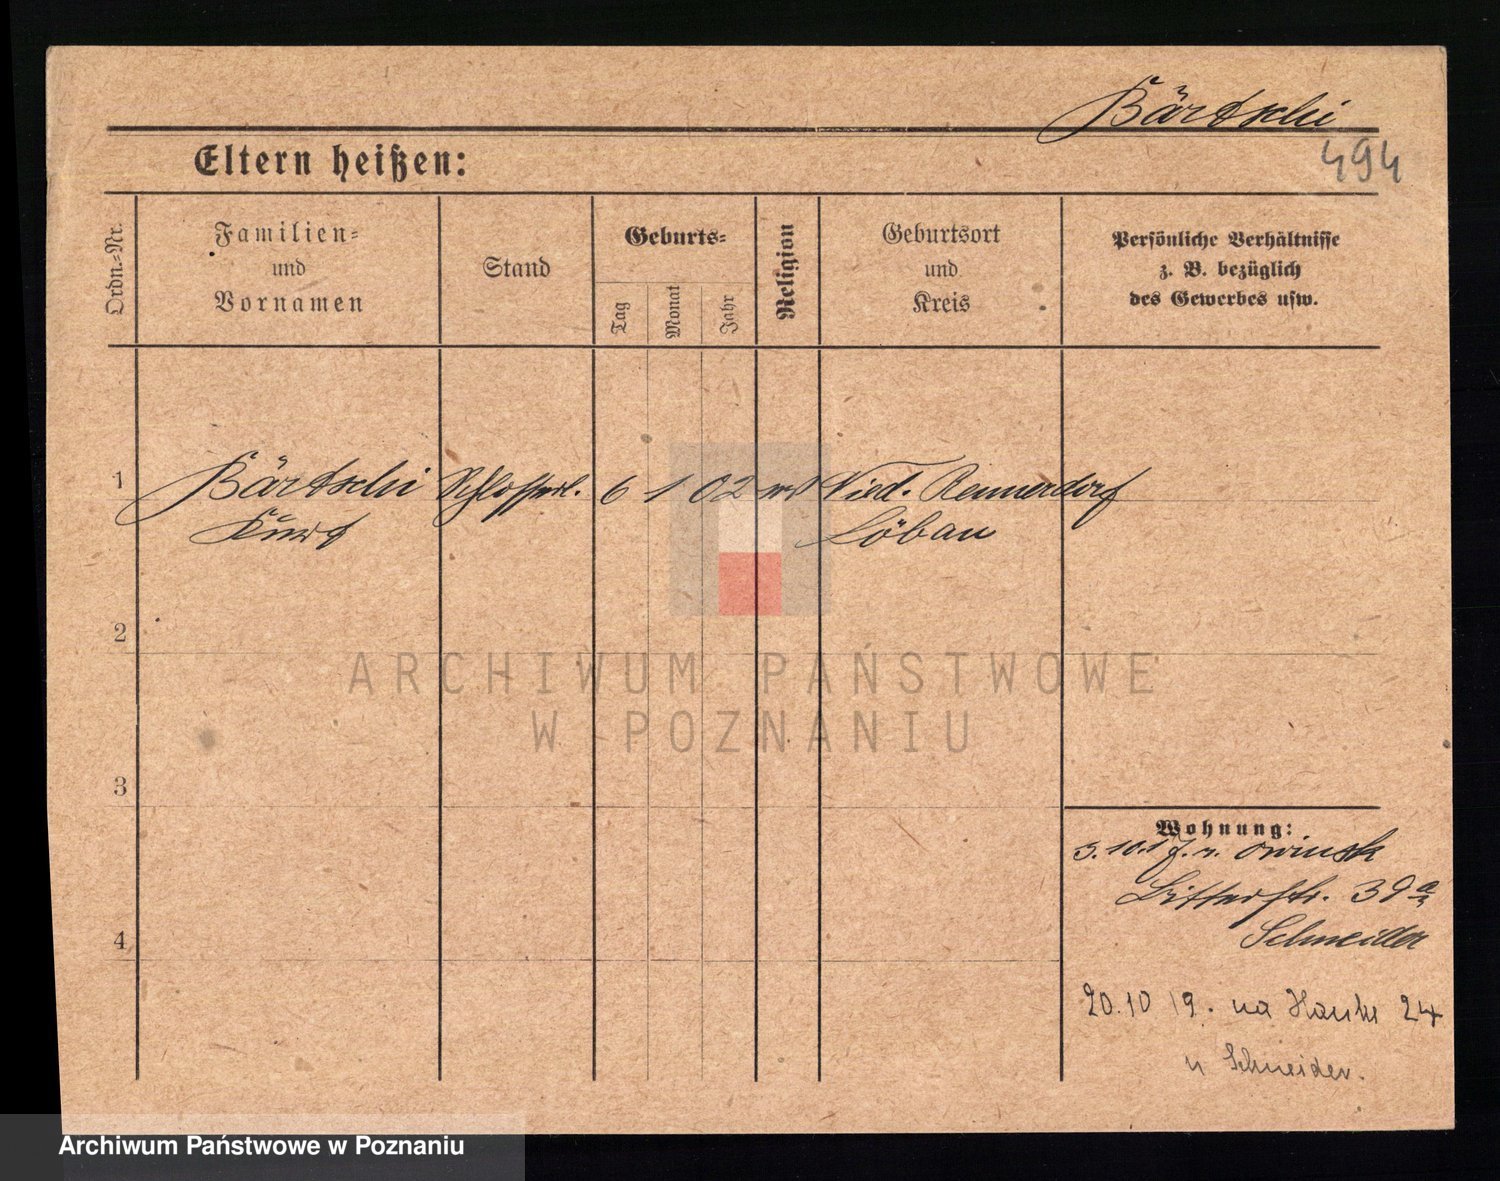 Bärtschi
494
Eltern heißen:
Ordn.-Nr.
Familien-
und
Vornamen
Stand
Geburts-
Tag
Monat
Jahr
Religion
Geburtsort
und
Kreis
Persönliche Verhältnisse
z. B. bezüglich
des Gewerbes usw.
1
Bärtschi
Kurt
Schlosserl.
6
1
02
Nied. Rennersdorf
Löbau
2
ARCHIWUM PAŃSTWOWE
W POZNANIU
3
Wohnung:
Owinsk
Bitterstr. 39a
Schneider
4
20.10 19. na Hanke 24
u Schneider.
Archiwum Państwowe w Poznaniu